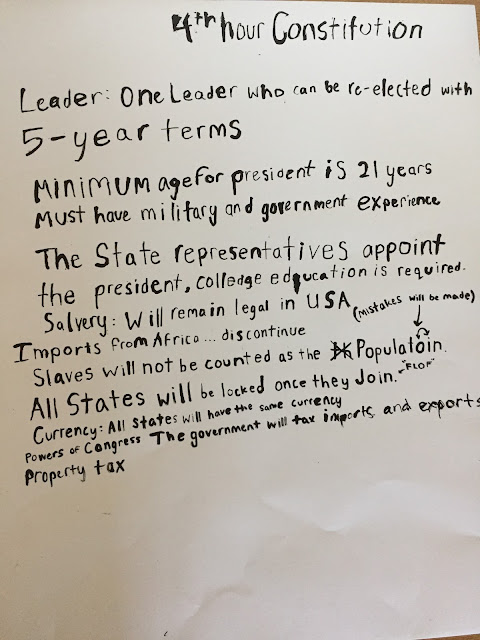 4th hour Constitution
Leader: One Leader who can be re-elected with
5-year terms
Minimum age for president is 21 years
Must have military and government experience
The State representatives appoint
the president, colledge edpucation is required.
Salvery: Will remain legal in USA (mistakes will be made)
Imports from Africa... discontinue
Slaves will not be counted as the Populatoin.
All States will be locked once they Join. "FLOP"
Currency: All States will have the same currency
Powers of Congress The government will tax imports and exports
Property tax